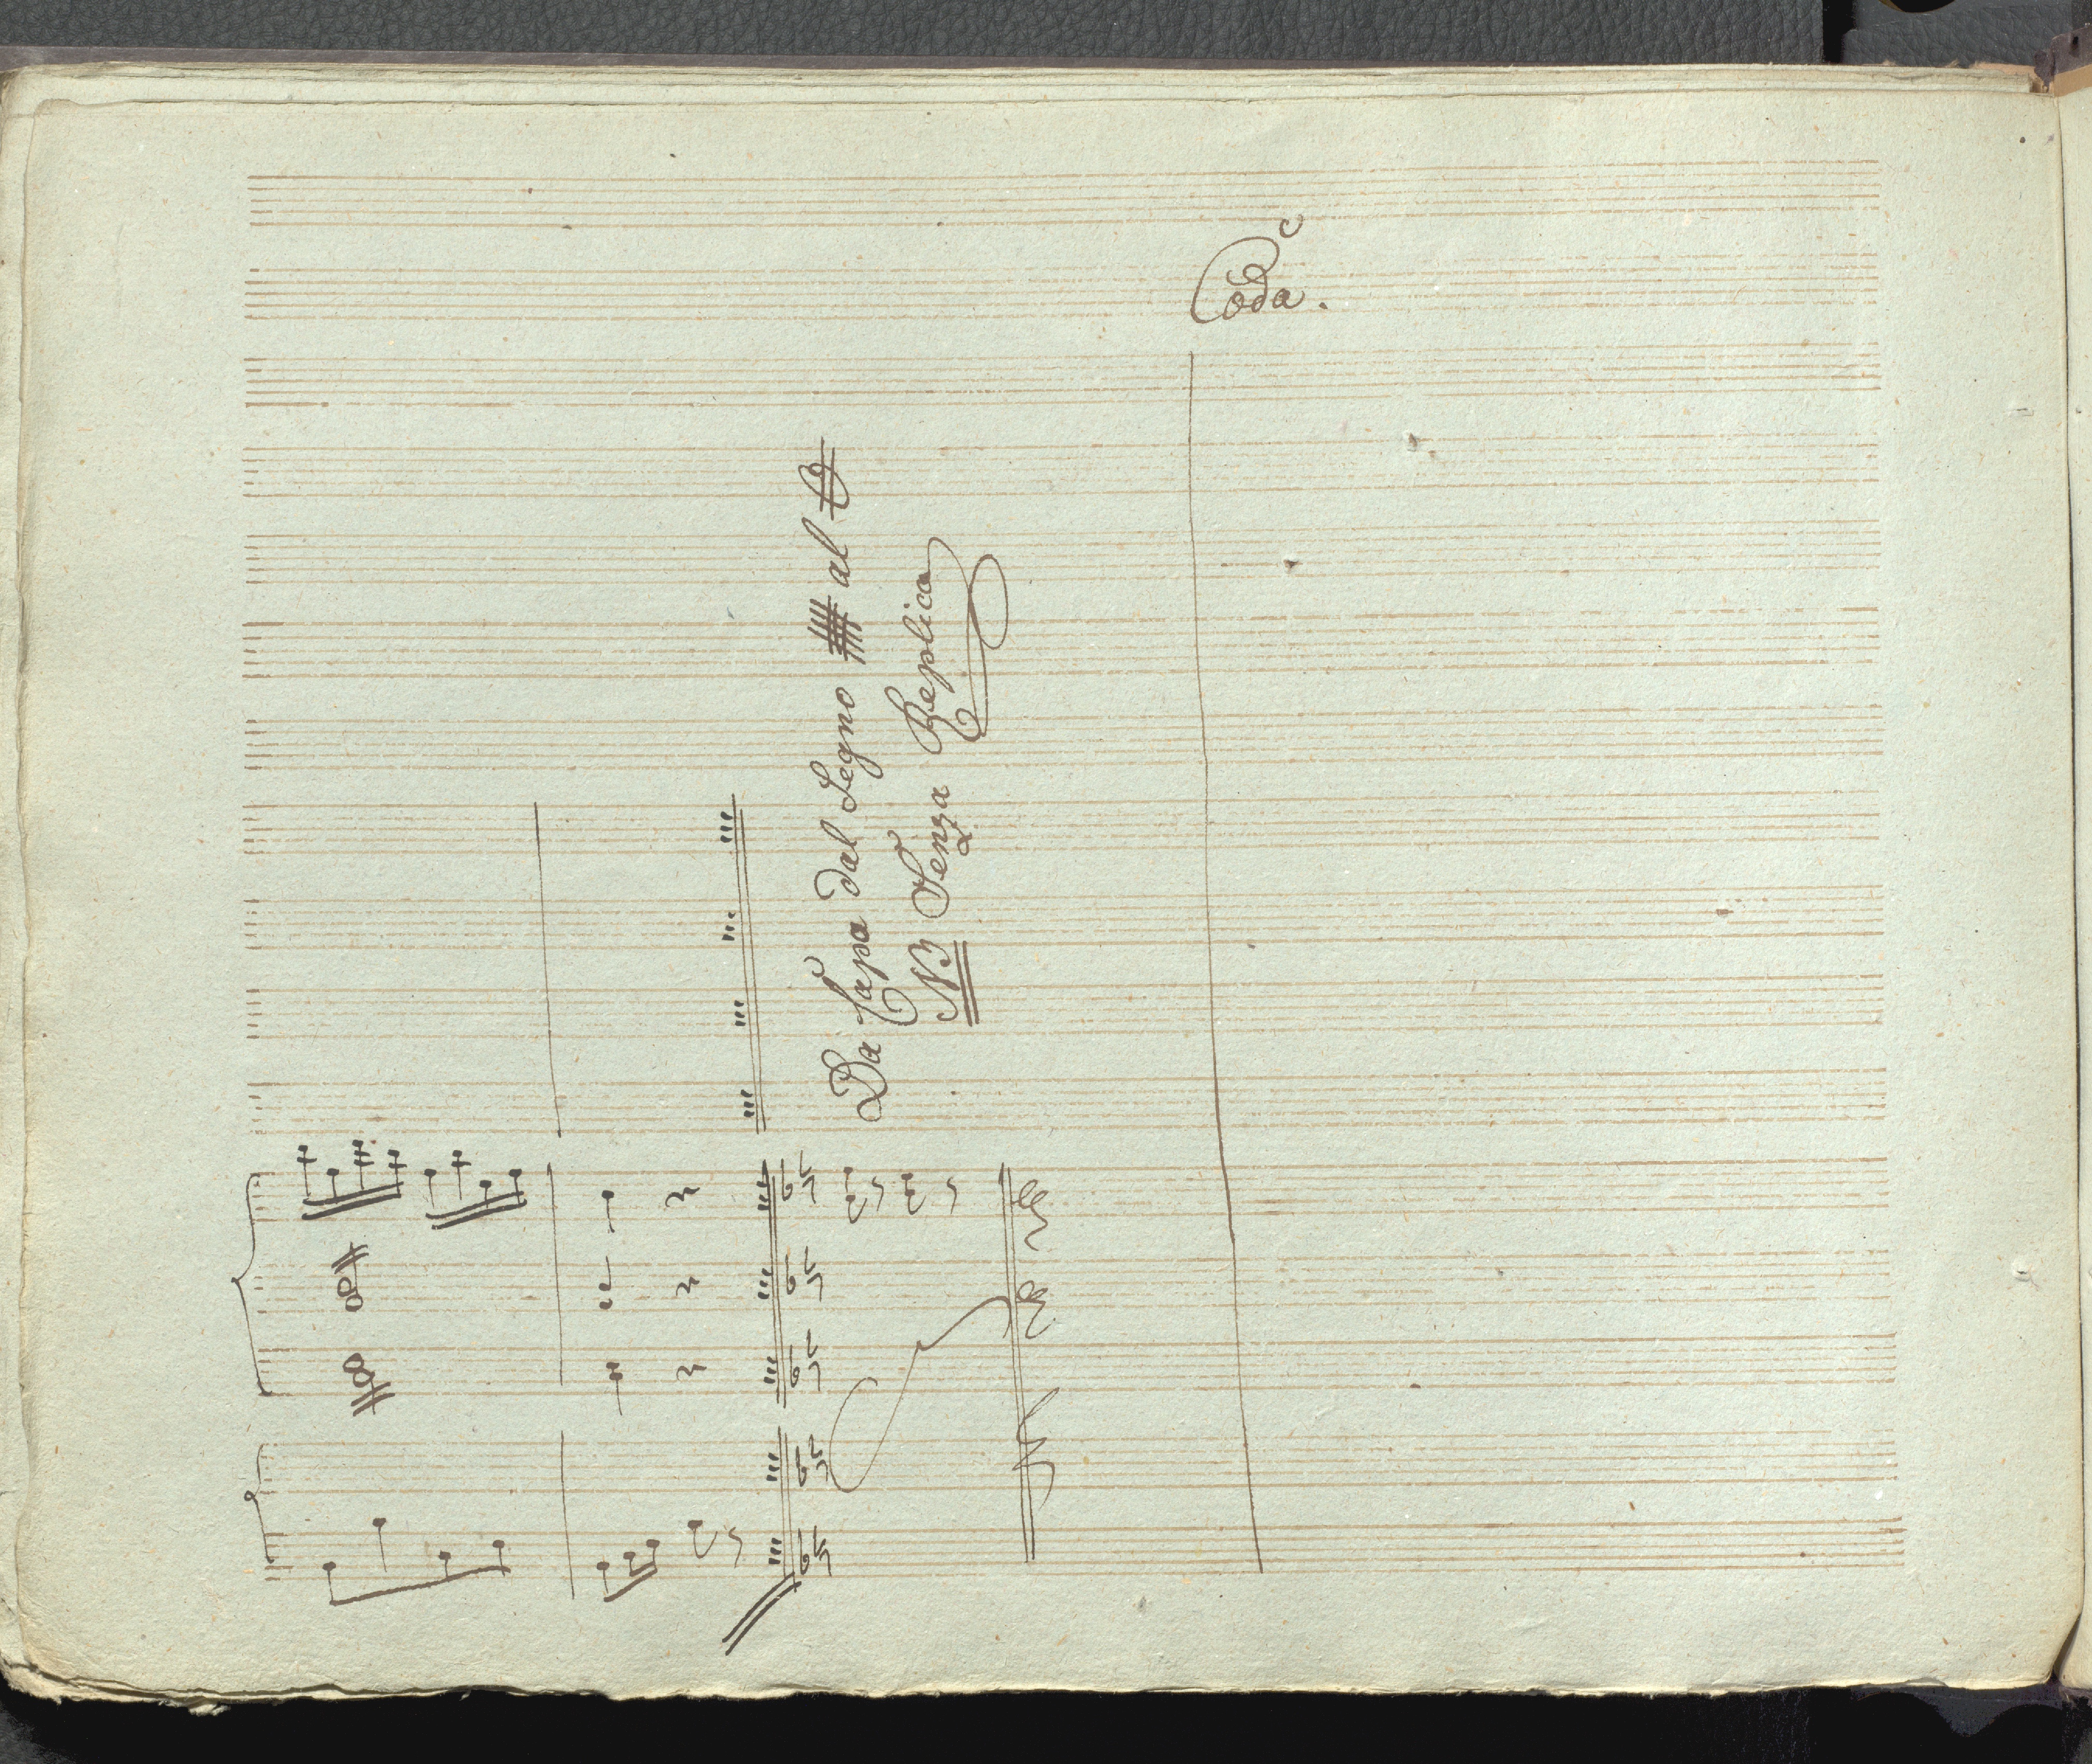 Coda.
Da Capo dal Segno al
NB Senza Replica